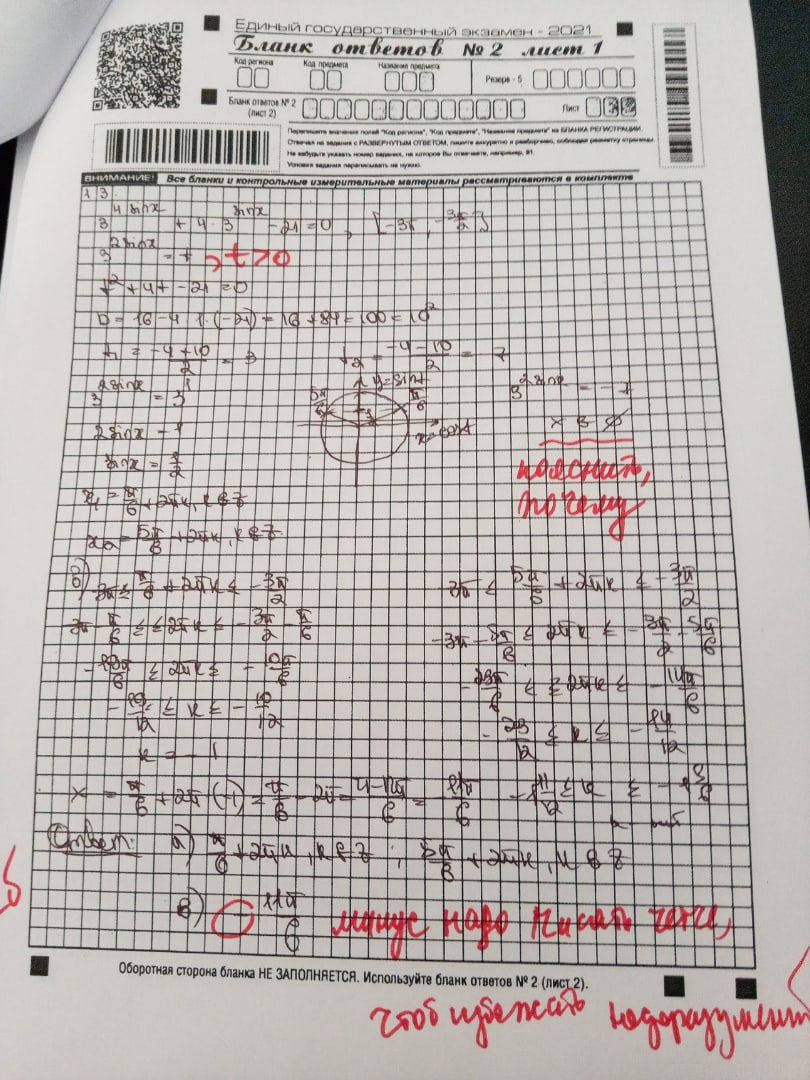 Единый государственный экзамен - 2021
Бланк ответов № 2 лист 1
Код региона
Код предмета
Название предмета
Резерв - 5
Бланк ответов № 2
(лист 2)
Лист
Перепишите значения полей "Код региона", "Код предмета", "Название предмета" из БЛАНКА РЕГИСТРАЦИИ.
Отвечая на задания с РАЗВЕРНУТЫМ ОТВЕТОМ, пишите аккуратно и разборчиво, соблюдая разметку страницы.
Не забудьте указать номер задания, на которое Вы отвечаете, например, 31.
Условия задания переписывать не нужно.
ВНИМАНИЕ! Все бланки и контрольные измерительные материалы рассматриваются в комплекте
13
3^{4sinx} + 4·3^{2sinx} - 21 = 0, [-3π, -3π/2]
3^{2sinx} = t, t>0
t² + 4t - 21 = 0
D = 16 - 4·1·(-21) = 16 + 84 = 100 = 10²
t₁ = (-4+10)/2 = 3 t₂ = (-4-10)/2 = -7
3^{2sinx} = 3¹ 5π/6 y=sint π/6 3^{2sinx} = -7
2sinx = 1 x=cost x ∈ ∅
sinx = 1/2 пояснить,
почему
x₁ = π/6 + 2πk, k∈Z
x₂ = 5π/6 + 2πk, k∈Z
б) -3π ≤ π/6 + 2πk ≤ -3π/2 -3π ≤ 5π/6 + 2πk ≤ -3π/2
-3π - π/6 ≤ 2πk ≤ -3π/2 - π/6 -3π - 5π/6 ≤ 2πk ≤ -3π/2 - 5π/6
-19π/6 ≤ 2πk ≤ -10π/6 -23π/6 ≤ 2πk ≤ -14π/6
-19/12 ≤ k ≤ -10/12 -23/12 ≤ k ≤ -14/12
k = -1
x = π/6 + 2π(-1) = π/6 - 2π = (π-12π)/6 = -11π/6
Ответ: а) π/6 + 2πk, k∈Z; 5π/6 + 2πk, k∈Z
в) -11π/6 минус надо писать четче,
Оборотная сторона бланка НЕ ЗАПОЛНЯЕТСЯ. Используйте бланк ответов № 2 (лист 2).
чтоб избежать недоразумений